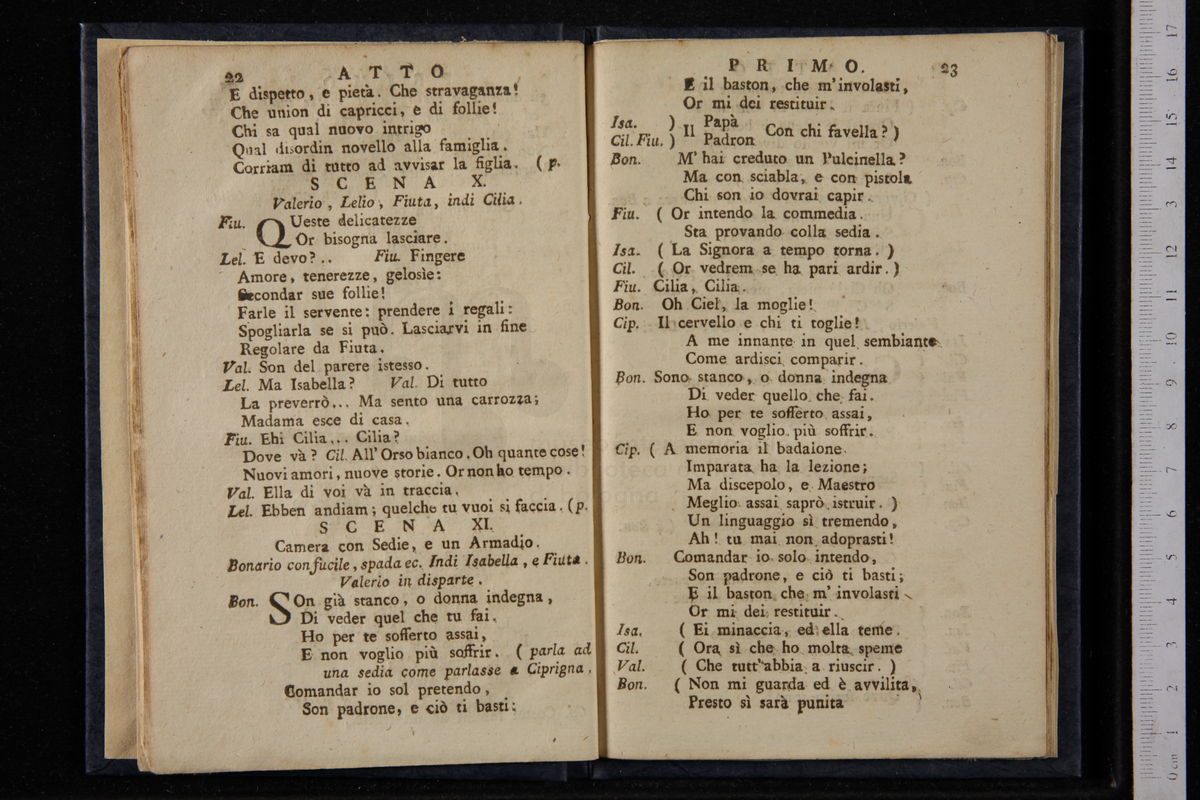 22 ATTO
E dispetto, e pietà. Che stravaganza!
Che union di capricci, e di follie!
Chi sa qual nuovo intrigo
Qual disordin novello alla famiglia.
Corriam di tutto ad avvisar la figlia. (p.
SCENA X.
Valerio, Lelio, Fiuta, indi Cilia.
Fiu. QUeste delicatezze
Or bisogna lasciare.
Lel. E devo?.. Fiu. Fingere
Amore, tenerezze, gelosìe:
Secondar sue follie!
Farle il servente: prendere i regali:
Spogliarla se si può. Lasciarvi in fine
Regolare da Fiuta.
Val. Son del parere istesso.
Lel. Ma Isabella? Val. Di tutto
La preverrò... Ma sento una carrozza;
Madama esce di casa.
Fiu. Ehi Cilia... Cilia?
Dove và? Cil. All'Orso bianco. Oh quante cose!
Nuovi amori, nuove storie. Or non ho tempo.
Val. Ella di voi và in traccia.
Lel. Ebben andiam; quelche tu vuoi si faccia. (p.
SCENA XI.
Camera con Sedie, e un Armadio.
Bonario con fucile, spada ec. Indi Isabella, e Fiuta.
Valerio in disparte.
Bon. SOn già stanco, o donna indegna,
Di veder quel che tu fai.
Ho per te sofferto assai,
E non voglio più soffrir. (parla ad
una sedia come parlasse a Ciprigna.
Comandar io sol pretendo,
Son padrone, e ciò ti basti:
PRIMO. 23
E il baston, che m'involasti,
Or mi dei restituir.
Isa. ) Il Papà Con chi favella?)
Cil. Fiu. ) Padron
Bon. M'hai creduto un Pulcinella?
Ma con sciabla, e con pistola
Chi son io dovrai capir.
Fiu. (Or intendo la commedia.
Sta provando colla sedia.
Isa. (La Signora a tempo torna.)
Cil. (Or vedrem se ha pari ardir.)
Fiu. Cilia, Cilia.
Bon. Oh Ciel, la moglie!
Cip. Il cervello e chi ti toglie!
A me innante in quel sembiante
Come ardisci comparir.
Bon. Sono stanco, o donna indegna
Di veder quello che fai.
Ho per te sofferto assai,
E non voglio più soffrir.
Cip. (A memoria il badaione
Imparata ha la lezione;
Ma discepolo, e Maestro
Meglio assai saprò istruir.)
Un linguaggio sì tremendo,
Ah! tu mai non adoprasti!
Bon. Comandar io solo intendo,
Son padrone, e ciò ti basti;
E il baston che m'involasti
Or mi dei restituir.
Isa. (Ei minaccia, ed ella teme.
Cil. (Ora sì che ho molta speme
Val. (Che tutt'abbia a riuscir.)
Bon. (Non mi guarda ed è avvilita,
Presto sì sarà punita